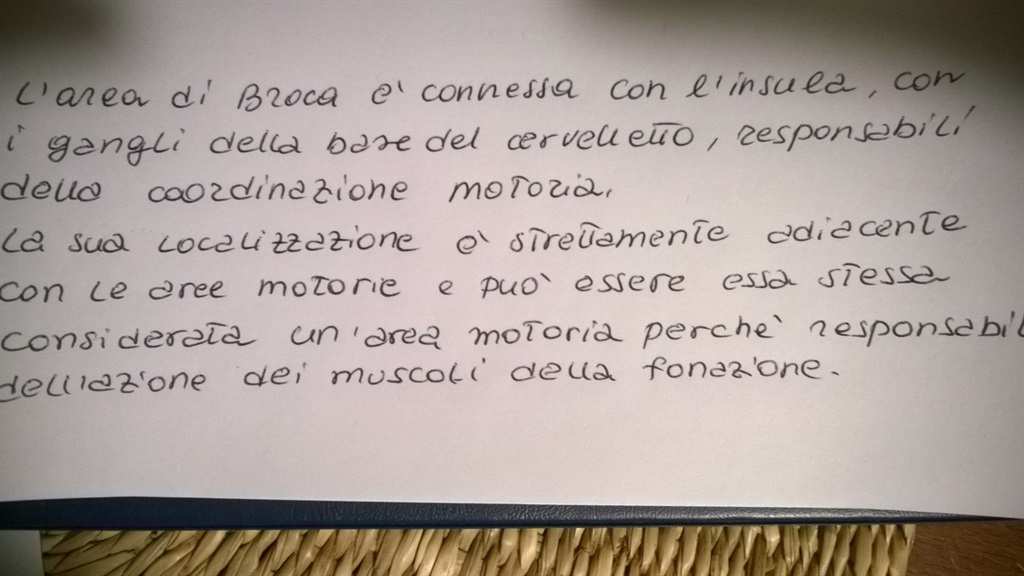 L'area di Broca e' connessa con l'insula, con
i gangli della base del cervelletto, responsabili
della coordinazione motoria.
La sua localizzazione e' strettamente adiacente
con le aree motorie e puo' essere essa stessa
considerata un'area motoria perche' responsabil
dell'azione dei muscoli della fonazione.